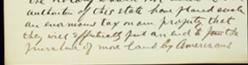 authorities of this state have placed such
an enormous tax upon property that
they will effectually put an end to the
purchase of more land by Americans